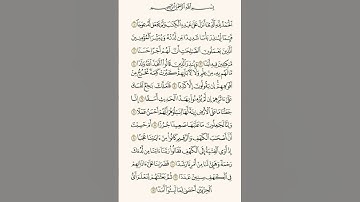 بِسْمِ ٱللَّهِ ٱلرَّحْمَٰنِ ٱلرَّحِيمِ
ٱلْحَمْدُ لِلَّهِ ٱلَّذِىٓ أَنزَلَ عَلَىٰ عَبْدِهِ ٱلْكِتَٰبَ وَلَمْ يَجْعَل لَّهُۥ عِوَجَا ۜ ١
قَيِّمًا لِّيُنذِرَ بَأْسًا شَدِيدًا مِّن لَّدُنْهُ وَيُبَشِّرَ ٱلْمُؤْمِنِينَ
ٱلَّذِينَ يَعْمَلُونَ ٱلصَّٰلِحَٰتِ أَنَّ لَهُمْ أَجْرًا حَسَنًا ٢
مَّٰكِثِينَ فِيهِ أَبَدًا ٣ وَيُنذِرَ ٱلَّذِينَ قَالُوا۟ ٱتَّخَذَ ٱللَّهُ وَلَدًا ٤
مَّا لَهُم بِهِۦ مِنْ عِلْمٍ وَلَا لِـَٔابَآئِهِمْ ۚ كَبُرَتْ كَلِمَةً تَخْرُجُ مِنْ
أَفْوَٰهِهِمْ ۚ إِن يَقُولُونَ إِلَّا كَذِبًا ٥ فَلَعَلَّكَ بَٰخِعٌ نَّفْسَكَ
عَلَىٰٓ ءَاثَٰرِهِمْ إِن لَّمْ يُؤْمِنُوا۟ بِهَٰذَا ٱلْحَدِيثِ أَسَفًا ٦ إِنَّا
جَعَلْنَا مَا عَلَى ٱلْأَرْضِ زِينَةً لَّهَا لِنَبْلُوَهُمْ أَيُّهُمْ أَحْسَنُ عَمَلًا ٧
وَإِنَّا لَجَٰعِلُونَ مَا عَلَيْهَا صَعِيدًا جُرُزًا ٨ أَمْ حَسِبْتَ
أَنَّ أَصْحَٰبَ ٱلْكَهْفِ وَٱلرَّقِيمِ كَانُوا۟ مِنْ ءَايَٰتِنَا عَجَبًا ٩
إِذْ أَوَى ٱلْفِتْيَةُ إِلَى ٱلْكَهْفِ فَقَالُوا۟ رَبَّنَآ ءَاتِنَا مِن لَّدُنكَ
رَحْمَةً وَهَيِّئْ لَنَا مِنْ أَمْرِنَا رَشَدًا ١٠ فَضَرَبْنَا عَلَىٰٓ ءَاذَانِهِمْ
فِى ٱلْكَهْفِ سِنِينَ عَدَدًا ١١ ثُمَّ بَعَثْنَٰهُمْ لِنَعْلَمَ أَىُّ
ٱلْحِزْبَيْنِ أَحْصَىٰ لِمَا لَبِثُوٓا۟ أَمَدًا ١٢